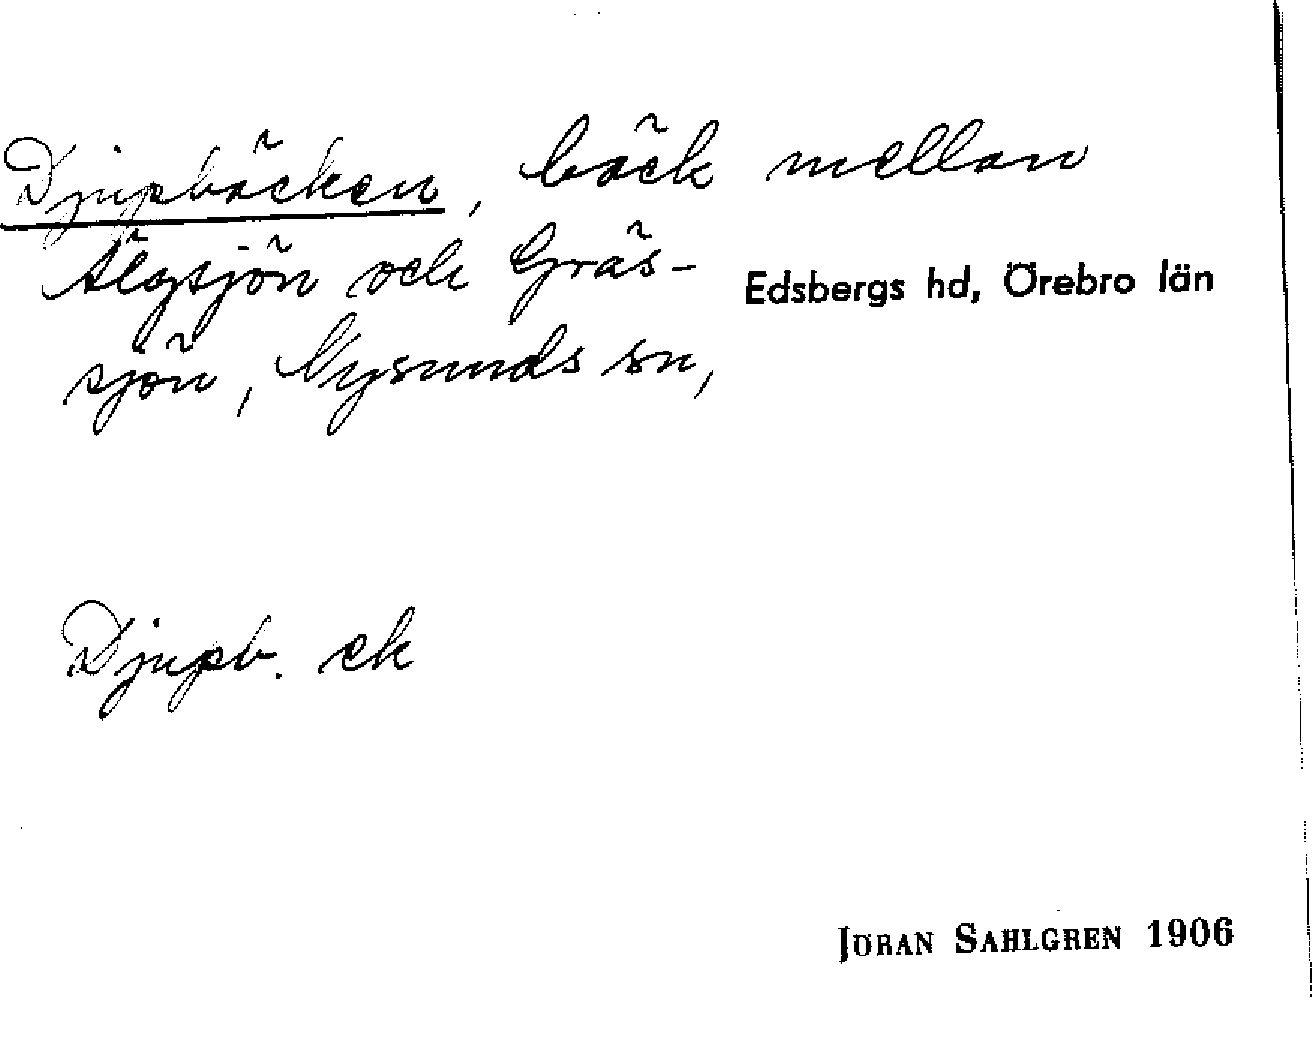 Djupbäcken, bäck mellan
Älgsjön och Gräs-
sjön, Nysunds sn,
Edsbergs hd, Örebro län
Djupb. ek
JÖRAN SAHLGREN 1906